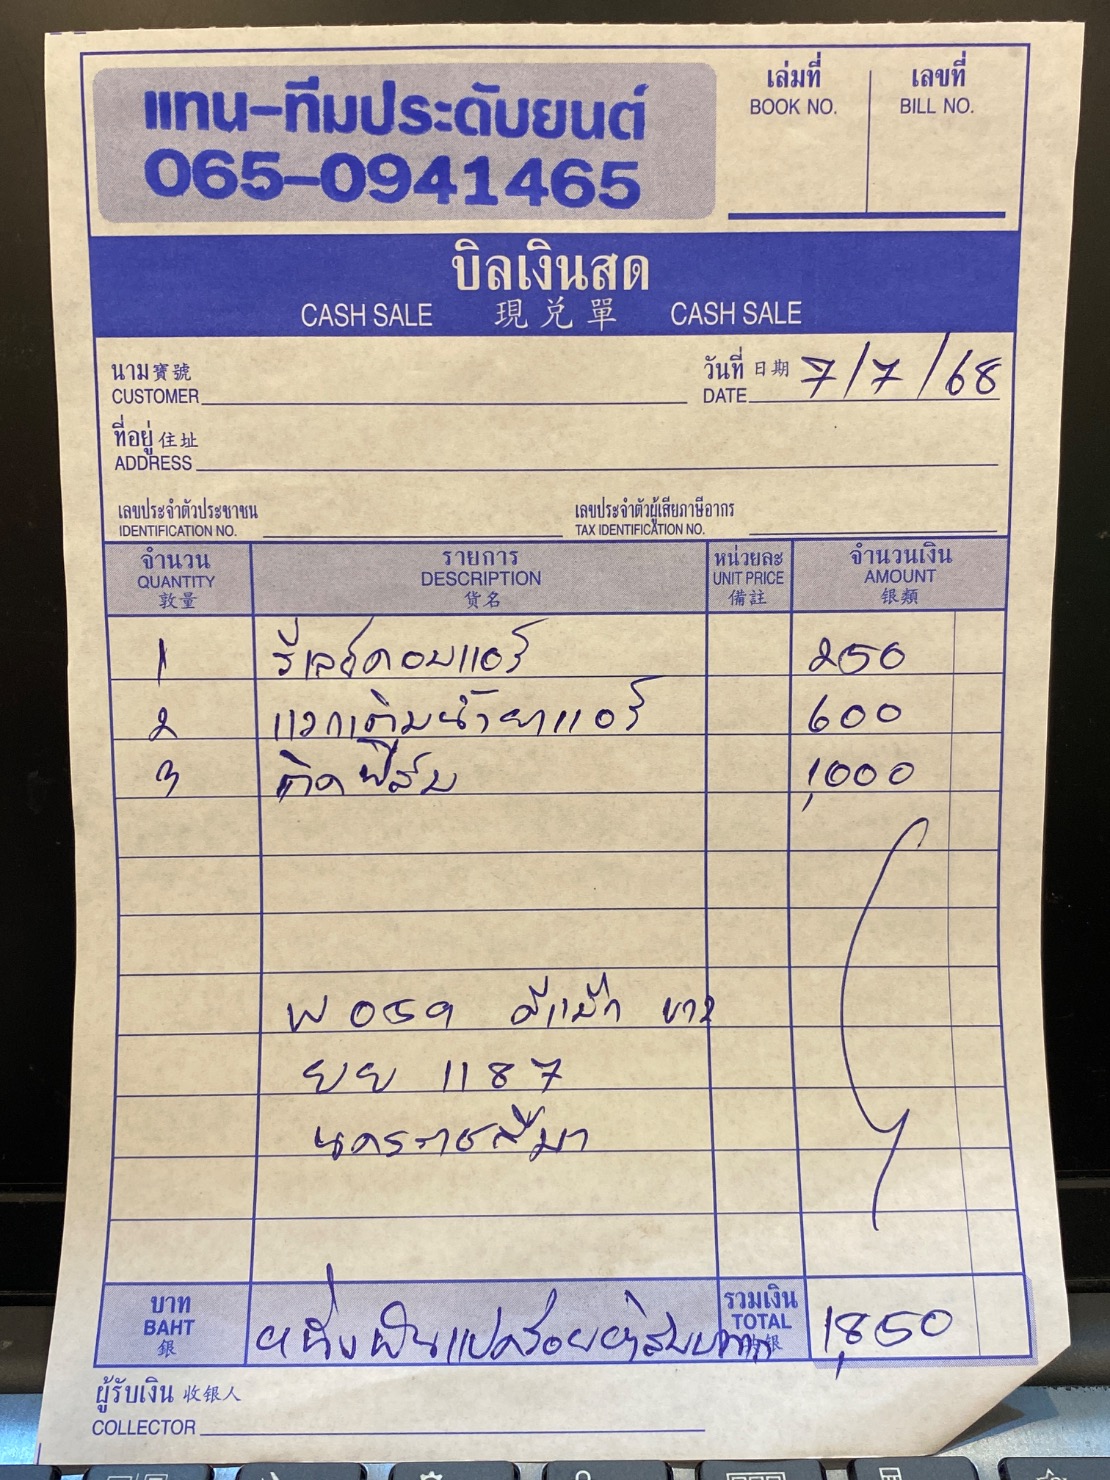 แทน-ทีมประดับยนต์
065-0941465
เล่มที่ เลขที่
BOOK NO. BILL NO.
บิลเงินสด
CASH SALE 現兌單 CASH SALE
นาม寶號 วันที่ 日期 7/7/68
CUSTOMER DATE
ที่อยู่ 住址
ADDRESS
เลขประจำตัวประชาชน เลขประจำตัวผู้เสียภาษีอากร
IDENTIFICATION NO. TAX IDENTIFICATION NO.
จำนวน รายการ หน่วยละ จำนวนเงิน
QUANTITY DESCRIPTION UNIT PRICE AMOUNT
敦量 货名 備註 银類
1 รีเลย์คอมแอร์ 250
2 แวกเติมน้ำยาแอร์ 600
3 ติดฟิล์ม 1,000
พ 059 ดีแม็ก ขาว
ยย 1187
นครราชสีมา
บาท รวมเงิน
BAHT หนึ่งพันแปดร้อยห้าสิบบาท TOTAL 1,850
銀 银
ผู้รับเงิน 收银人
COLLECTOR